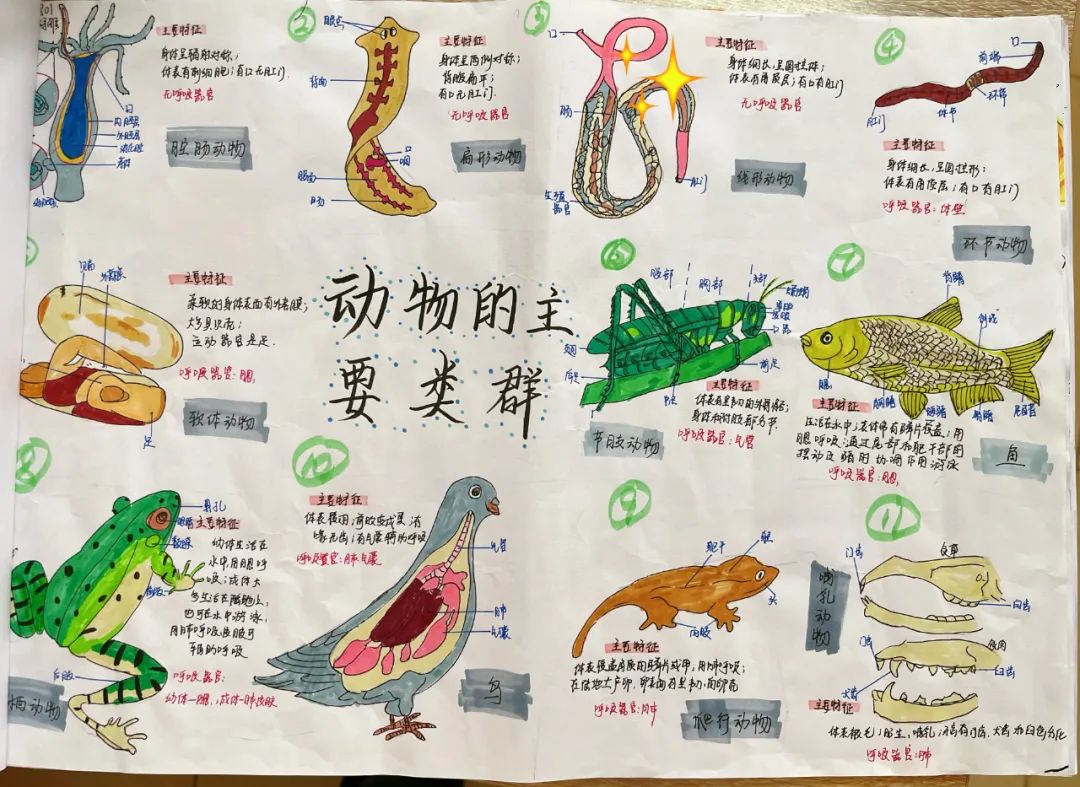 301
动物的主
要类群
口
内胚层
外胚层
消化腔
主要特征
身体呈辐射对称;
体表有刺细胞;有口无肛门.
无呼吸器官
腔肠动物
2
眼点
背面
口
咽
腹面
主要特征
身体呈两侧对称;
背腹扁平;
有口无肛门.
无呼吸器官
扁形动物
3
口
肠
生殖
器官
肛门
主要特征
身体细长,呈圆柱体;
体表有角质层;有口有肛门
无呼吸器官
线形动物
4
口
前端
环带
体节
肛门
主要特征
身体细长,呈圆柱形;
体表有角质层;有口有肛门
呼吸器官:体壁
环节动物
贝壳
外套膜
足
主要特征
柔软的身体表面有外套膜;
大多具贝壳;
运动器官是足.
呼吸器官:鳃
软体动物
6
腹部
胸部
头部
触角
口器
后足
中足
前足
主要特征
体表有坚韧的外骨骼;
身体和附肢都分节.
呼吸器官:气管
节肢动物
7
背鳍
侧线
鳃
胸鳍
腹鳍
臀鳍
尾鳍
主要特征
生活在水中;表体常有鳞片覆盖;用
鳃呼吸;通过尾部和躯干部的
摆动及鳍的协调作用游泳
呼吸器官:鳃
鱼
8
鼻孔
眼睛
鼓膜
前肢
后肢
主要特征
幼体生活在
水中用鳃呼
吸;成体大
多生活在陆地上,
也可在水中游泳,
用肺呼吸,皮肤可
辅助呼吸
呼吸器官:
幼体—鳃,成体—肺皮肤
栖动物
10
主要特征
体表覆羽;前肢变成翼;有
喙无齿;有气囊辅助呼吸
呼吸器官:肺气囊
气管
肺
气囊
鸟
9
躯干
眼
头
四肢
主要特征
体表覆盖角质的鳞片或甲,用肺呼吸;
在陆地上产卵,卵表面有坚韧的卵壳
呼吸器官:肺
爬行动物
11
哺乳动物
门齿
食草
臼齿
门齿
食肉
臼齿
犬齿
主要特征
体表被毛;胎生,哺乳;牙齿有门齿、犬齿和臼齿分化
呼吸器官:肺